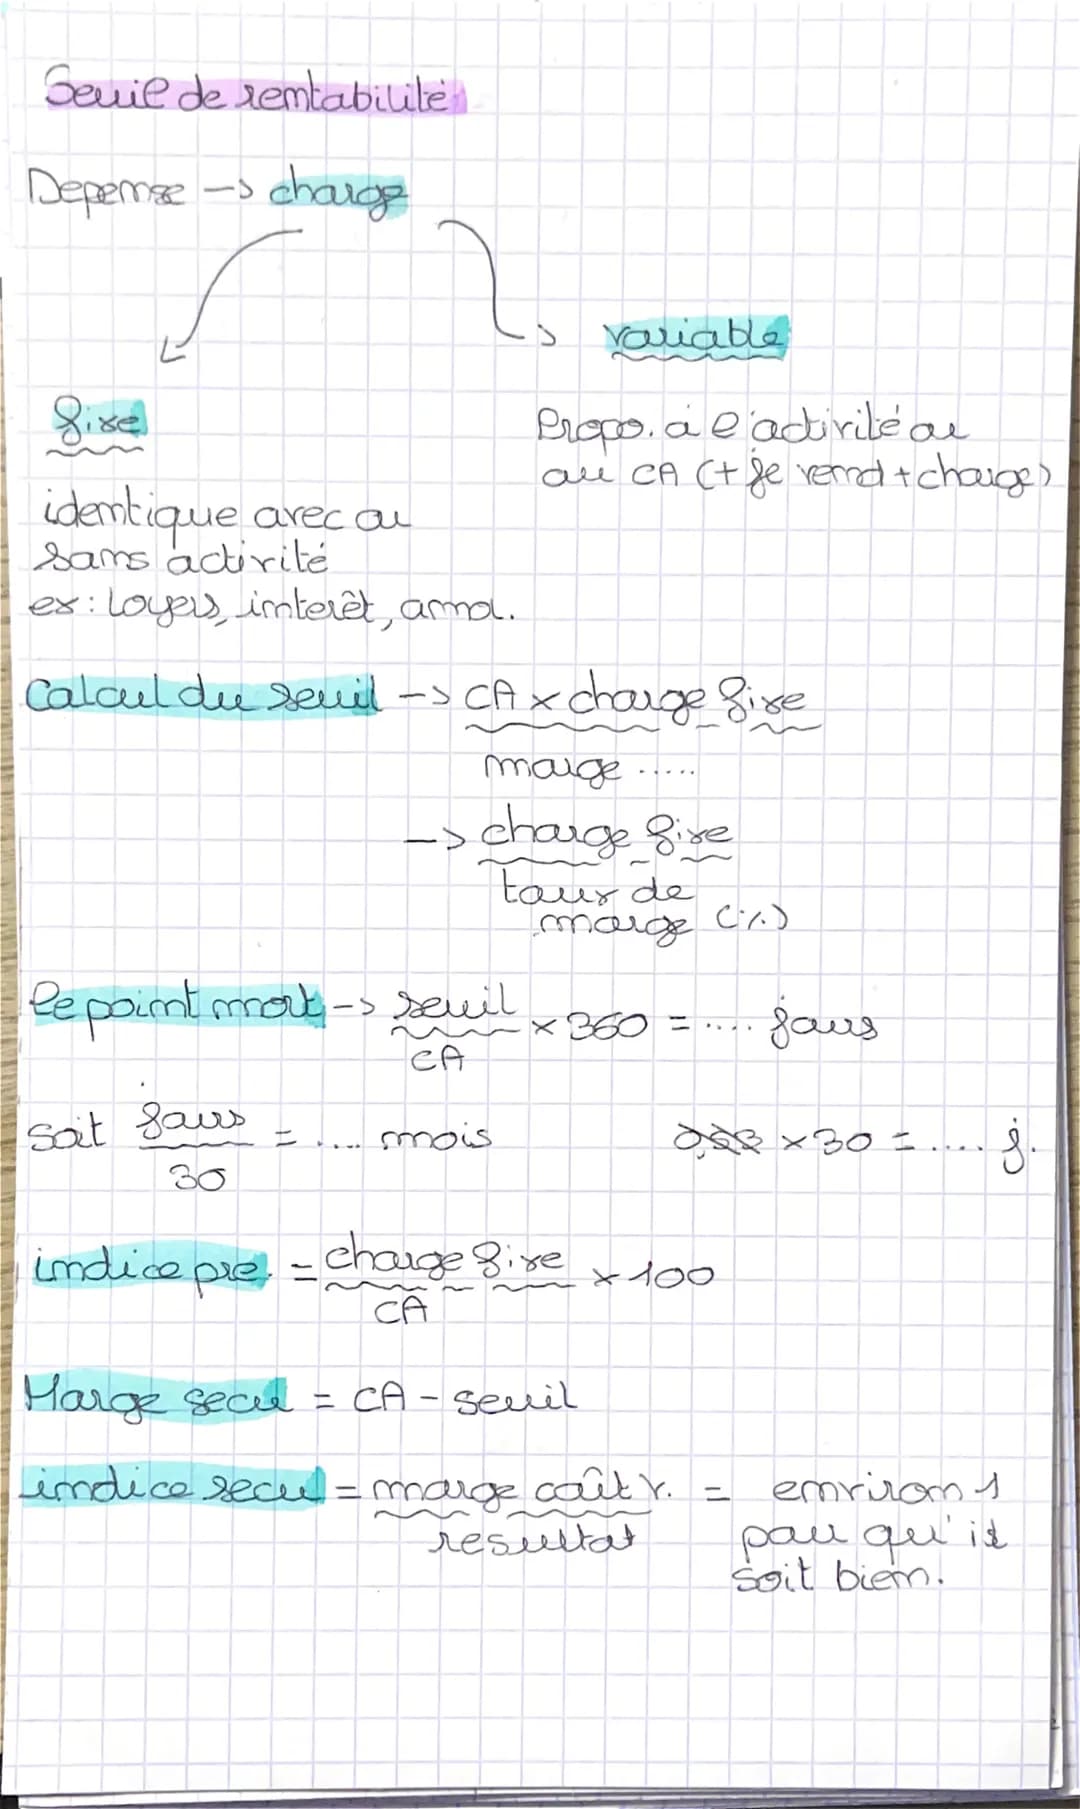 Seuil de rentabilité
Depense -> charge
variable
fixe
Propo. à l'activité ou
au CA (+ je vend + charge)
identique avec ou
sans activité
ex : loyers, interêt, amo.
Calcul du seuil -> CA x charge fixe
marge .....
-> charge fixe
taux de
marge (%)
le point mort -> seuil x 360 = .... jours
CA
soit jours = .... mois x 30 = .... j.
30
indice pre. = charge fixe x 100
CA
Marge secu = CA - seuil
indice secu = marge coût v. = environ 1
resultat pour qu'il
soit bien.